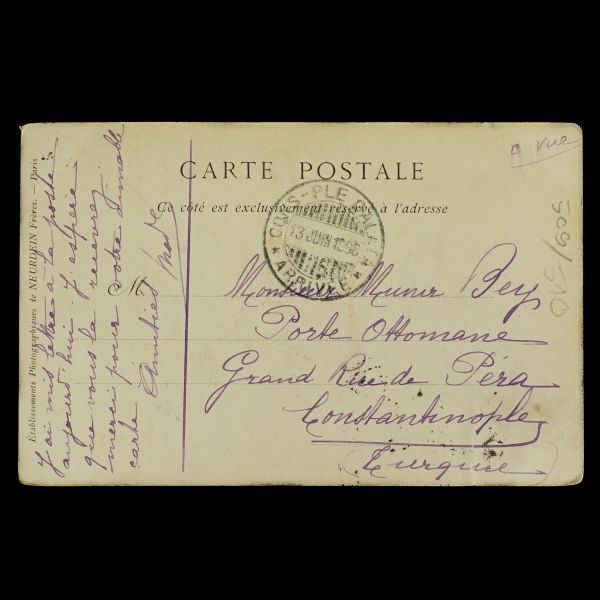 CARTE POSTALE
Ce côté est exclusivement réservé à l'adresse
à vue
CONS-PLE GALATA
13 JUIN 1906
* ARRIVÉE *
M Monsieur Munir Bey
Porte Ottomane
Grand Rue de Péra
Constantinople
(Turquie)
J'ai mis lettre à la poste
aujourd'hui. J'espère
que vous la recevrez
merci pour votre aimable
carte Amitiés
Établissements Photographiques de NEURDEIN Frères. — Paris
509/510